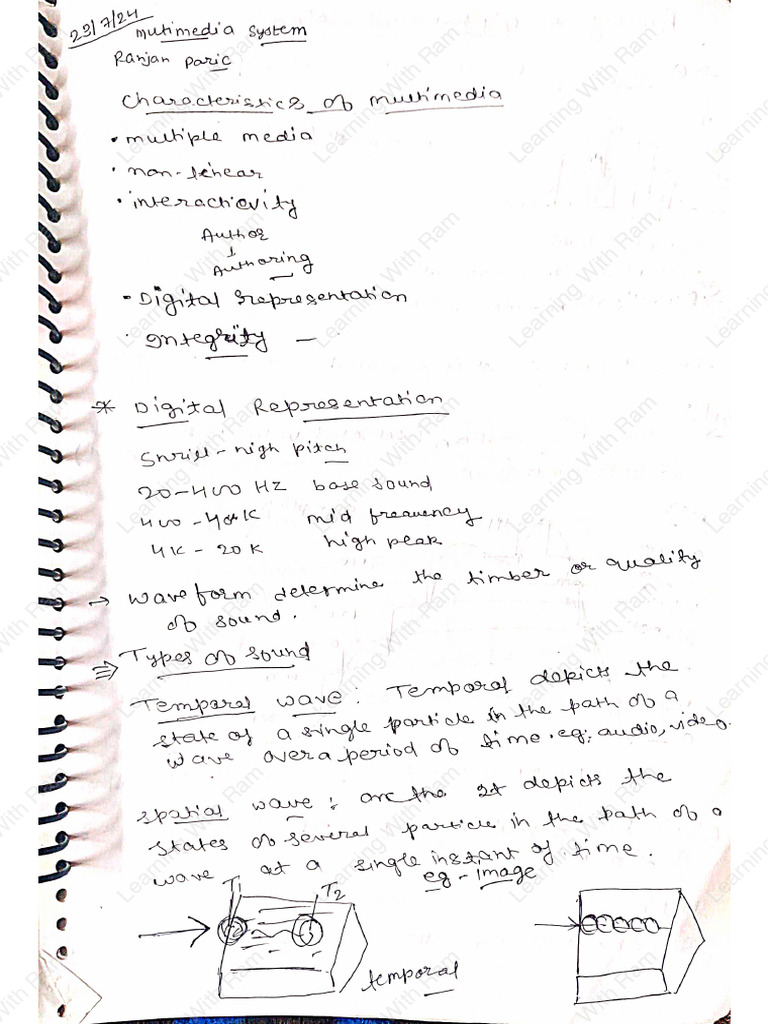 23/7/24
Mutimedia System
Ranjan Paric
Characteristics of multimedia
• multiple media
• non-linear
• interactievity
Author
↓
Authoring
• Digital representation
• Integrity —
* Digital Representation
Shrill - high pitch
20-400 HZ base sound
400 - 4K mid frequency
4K - 20K high peak
→ waveform determine the timber or quality
of sound.
⇒ Types of sound
Temporal wave: Temporal depicts the
state of a single particle in the path of a
wave over a period of time. eg: audio, video.
spatial wave: the It depicts the
states of several particle in the path of a
wave at a single instant of time.
eg - image
T1
T2
temporal
Learning With Ram